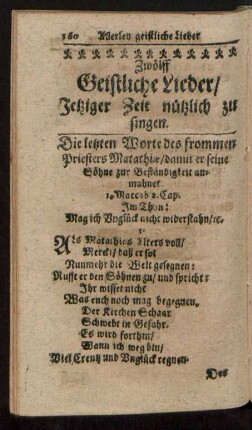 160 Allerley geistliche Lieder
Zwölff
Geistliche Lieder/
Jetziger Zeit nützlich zu
singen.
Die letzten Worte des frommen
Priesters Matathiæ/damit er seine
Söhne zur Beständigkeit an-
mahnet
1. Maccab 2. Cap.
Im Thon:
Mag ich Unglück nicht widerstahn/rc.
1.
Als Matathias Alters voll/
Merckt/ daß er sol
Nunmehr die Welt gesegnen:
Rufft er den Söhnen zu/ und spricht:
Ihr wisset nicht
Was euch noch mag begegnen.
Der Kirchen Schaar
Schwebt in Gefahr.
Es wird forthin/
Wann ich weg bin/
Viel Creutz und Unglück regnen.
Des